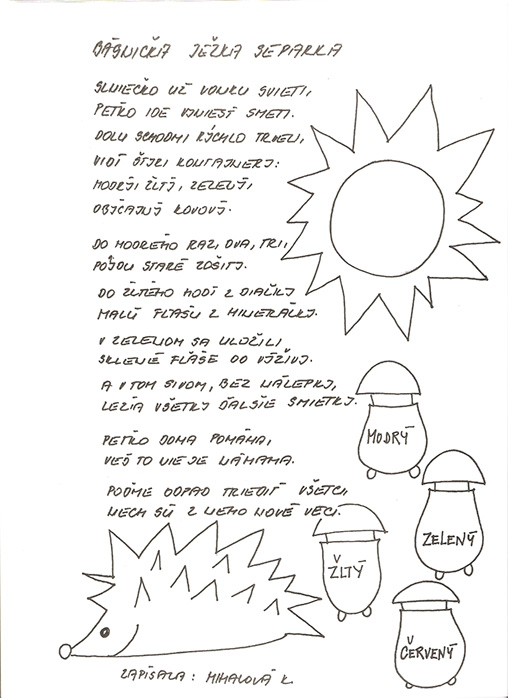 BÁSNIČKA JEŽKA SEPARKA
SLNIEČKO UŽ VONKU SVIETI,
PEŤKO IDE VYNIESŤ SMETI.
DOLU SCHODMI RÝCHLO TRIELI,
VIDÍ ŠTYRI KONTAJNERY:
MODRÝ, ŽLTÝ, ZELENÝ,
OBYČAJNÝ KOVOVÝ.
DO MODRÉHO RAZ, DVA, TRI,
PÔJDU STARÉ ZOŠITY.
DO ŽLTÉHO HODÍ Z DIAĽKY
MALÚ FĽAŠU Z MINERÁLKY.
V ZELENOM SA ULOŽILI
SKLENÉ FĽAŠE OD VÝŽIVY.
A V TOM SIVOM, BEZ NÁLEPKY,
LEŽIA VŠETKY ĎALŠIE SMIETKY.
PEŤKO DOMA POMÁHA,
VEĎ TO NIE JE NÁMAHA.
POĎME ODPAD TRIEDIŤ VŠETCI,
NECH SÚ Z NEHO NOVÉ VECI.
MODRÝ
ZELENÝ
ŽLTÝ
ČERVENÝ
ZAPÍSALA: MIHALOVÁ K.